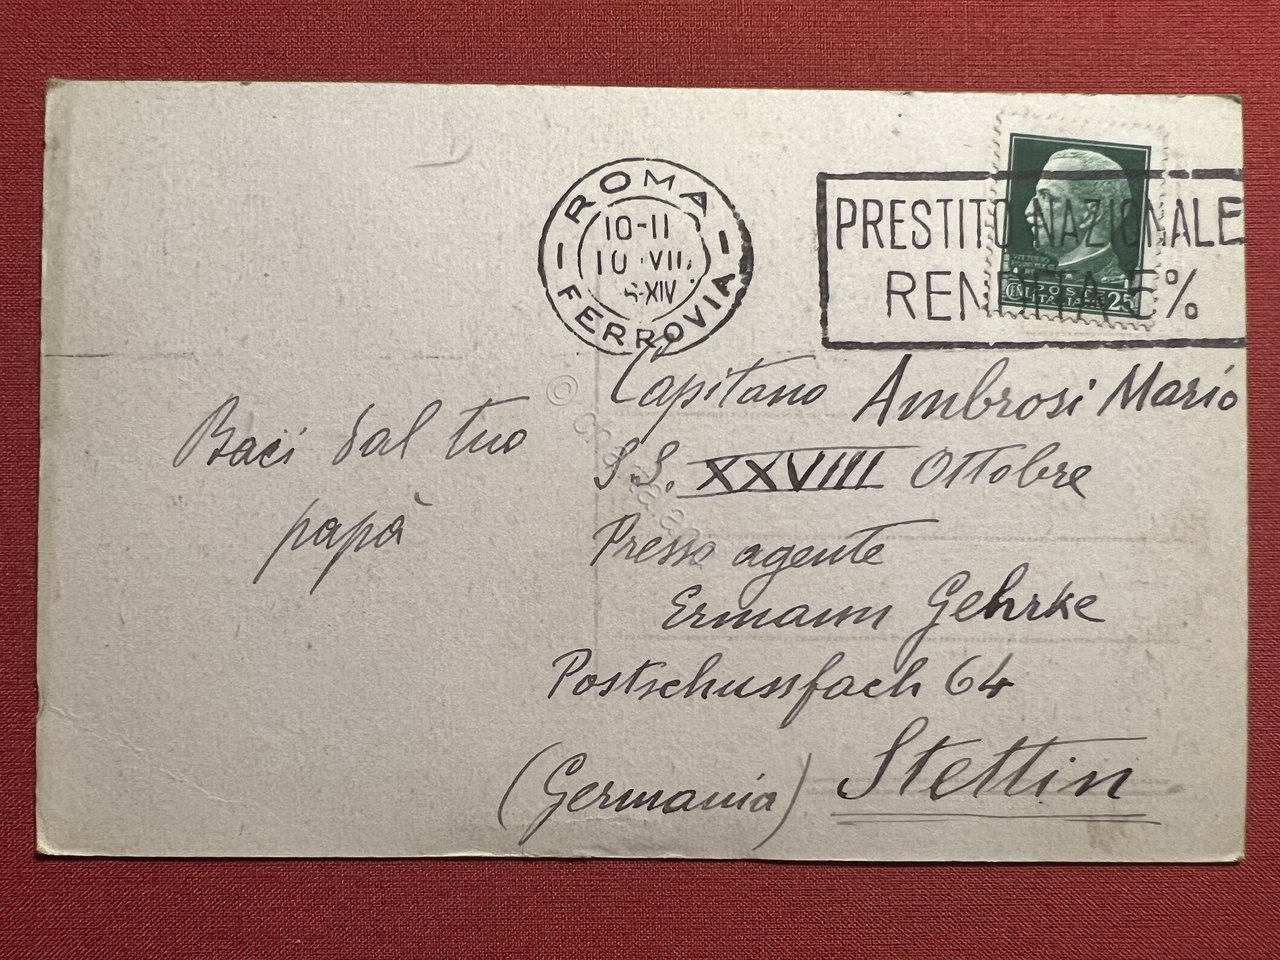 ROMA
10-11
10 VII
-XIV
FERROVIA
PRESTITO NAZIONALE
RENDITA 5%
POSTE
ITALIANE
CENT 25
Baci dal tuo
papà
Capitano Ambrosi Mario
S.S. XXVIII Ottobre
Presso agente
Ermann Gehrke
Postschussfach 64
(Germania) Stettin